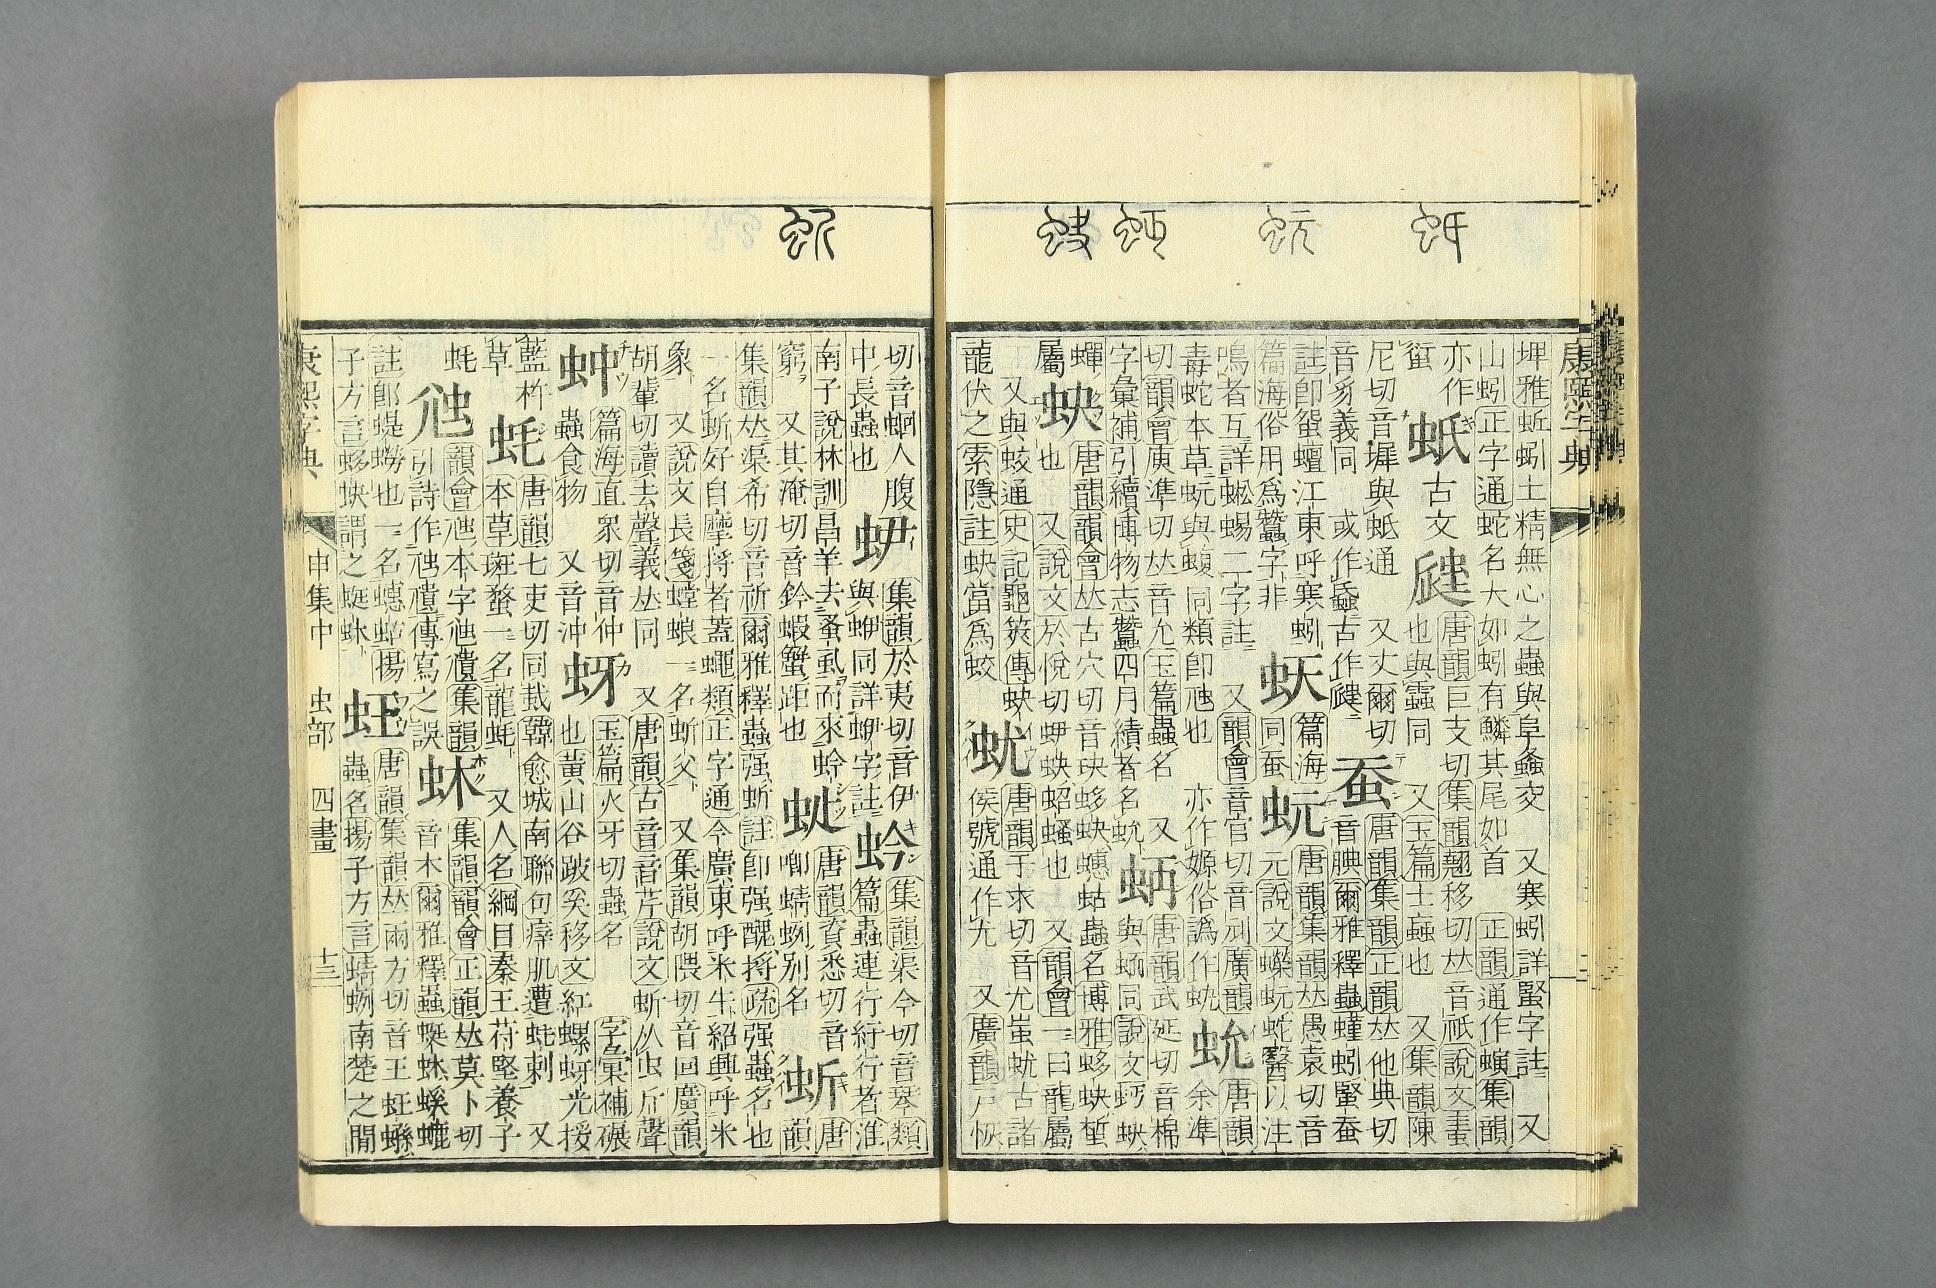 康熙字典
埤雅蚯蚓土精無心之蟲與阜螽交 又寒蚓詳䘆字註 又
山蚓正字通蛇名大如蚓有鱗其尾如首 正韻通作螾集韻
亦作
蚔 古文
唐韻巨支切集韻翹移切𠀤音祇說文畫
也與䘍同 又玉篇土蟲也 又集韻陳
尼切音墀與蚳通 又丈爾切
音豸義同 或作
蚕
唐韻集韻正韻𠀤他典切
音腆爾雅釋蟲螼蚓䘆蚕
註卽䖤蟺江東呼寒蚓
篇海俗用爲蠶字非
篇海
同蚕
蚖
唐韻集韻𠀤愚袁切音
元說文蠑蚖蛇醫以注
鳴者互詳蜥蜴二字註 又韻會音官切音刓廣韻
毒蛇本草蚖與蝮同類卽虺也 亦作螈俗譌作
唐韻
余準
切韻會庾準切𠀤音允玉篇蟲名 又
字彙補引續博物志蠶四月績者名
唐韻武延切音棉
與蝒同說文蚵蚗
蟬
屬
蚗
唐韻韻會𠀤古穴切音玦蛥蚗蟪蛄蟲名博雅蛥蚗蜤
也 又說文於悅切蚗蛁蟟也 又韻會一曰龍屬
又與蛟通史記龜筴傳蚗
龍伏之索隱註蚗當爲蛟
蚘
唐韻于求切音尤蚩蚘古諸
侯號通作尤 又廣韻戶恢
切音蛔人腹
中長蟲也
集韻於夷切音伊
與蛜同詳蛜字註
蚙
集韻渠今切音琴類
篇蟲連行紆行者淮
南子說林訓昌羊去蚤蝨而來蚙
窮 又其淹切音鈐蝦蟹距也
唐韻資悉切音
唧蜻蛚別名
蚚
唐
韻
集韻𠀤渠希切音祈爾雅釋蟲强蚚註卽强醜捋疏强蟲名也
一名蚚好自摩捋者蓋蠅類正字通今廣東呼米牛紹興呼米
象 又說文長箋螳蜋一名蚚父 又集韻胡隈切音回廣韻
胡輩切讀去聲義𠀤同 又唐韻古音音芹說文蚚从虫斤聲
蚛
篇海直衆切音仲
蟲食物 又音沖
蚜
玉篇火牙切蟲名 字彙補碾
也黃山谷跛奚移文紅螺蚜光授
藍杵
草
蚝
唐韻七吏切同蛓韓愈城南聯句痒肌遭蚝刺 又
本草斑蝥一名龍蚝 又人名綱目秦王苻堅養子
蚝
韻會虺本字虺隤集韻
引詩作隤傳寫之誤
蚞
集韻韻會正韻𠀤莫卜切
音木爾雅釋蟲蜓蚞螇螰
註卽蝭蟧也一名蟪蛄揚
子方言蛥蚗謂之蜓蚞
蚟
唐韻集韻𠀤雨方切音王蚟
蟲名揚子方言蜻蛚南楚之閒
康熙字典 申集中 虫部 四畫 十三